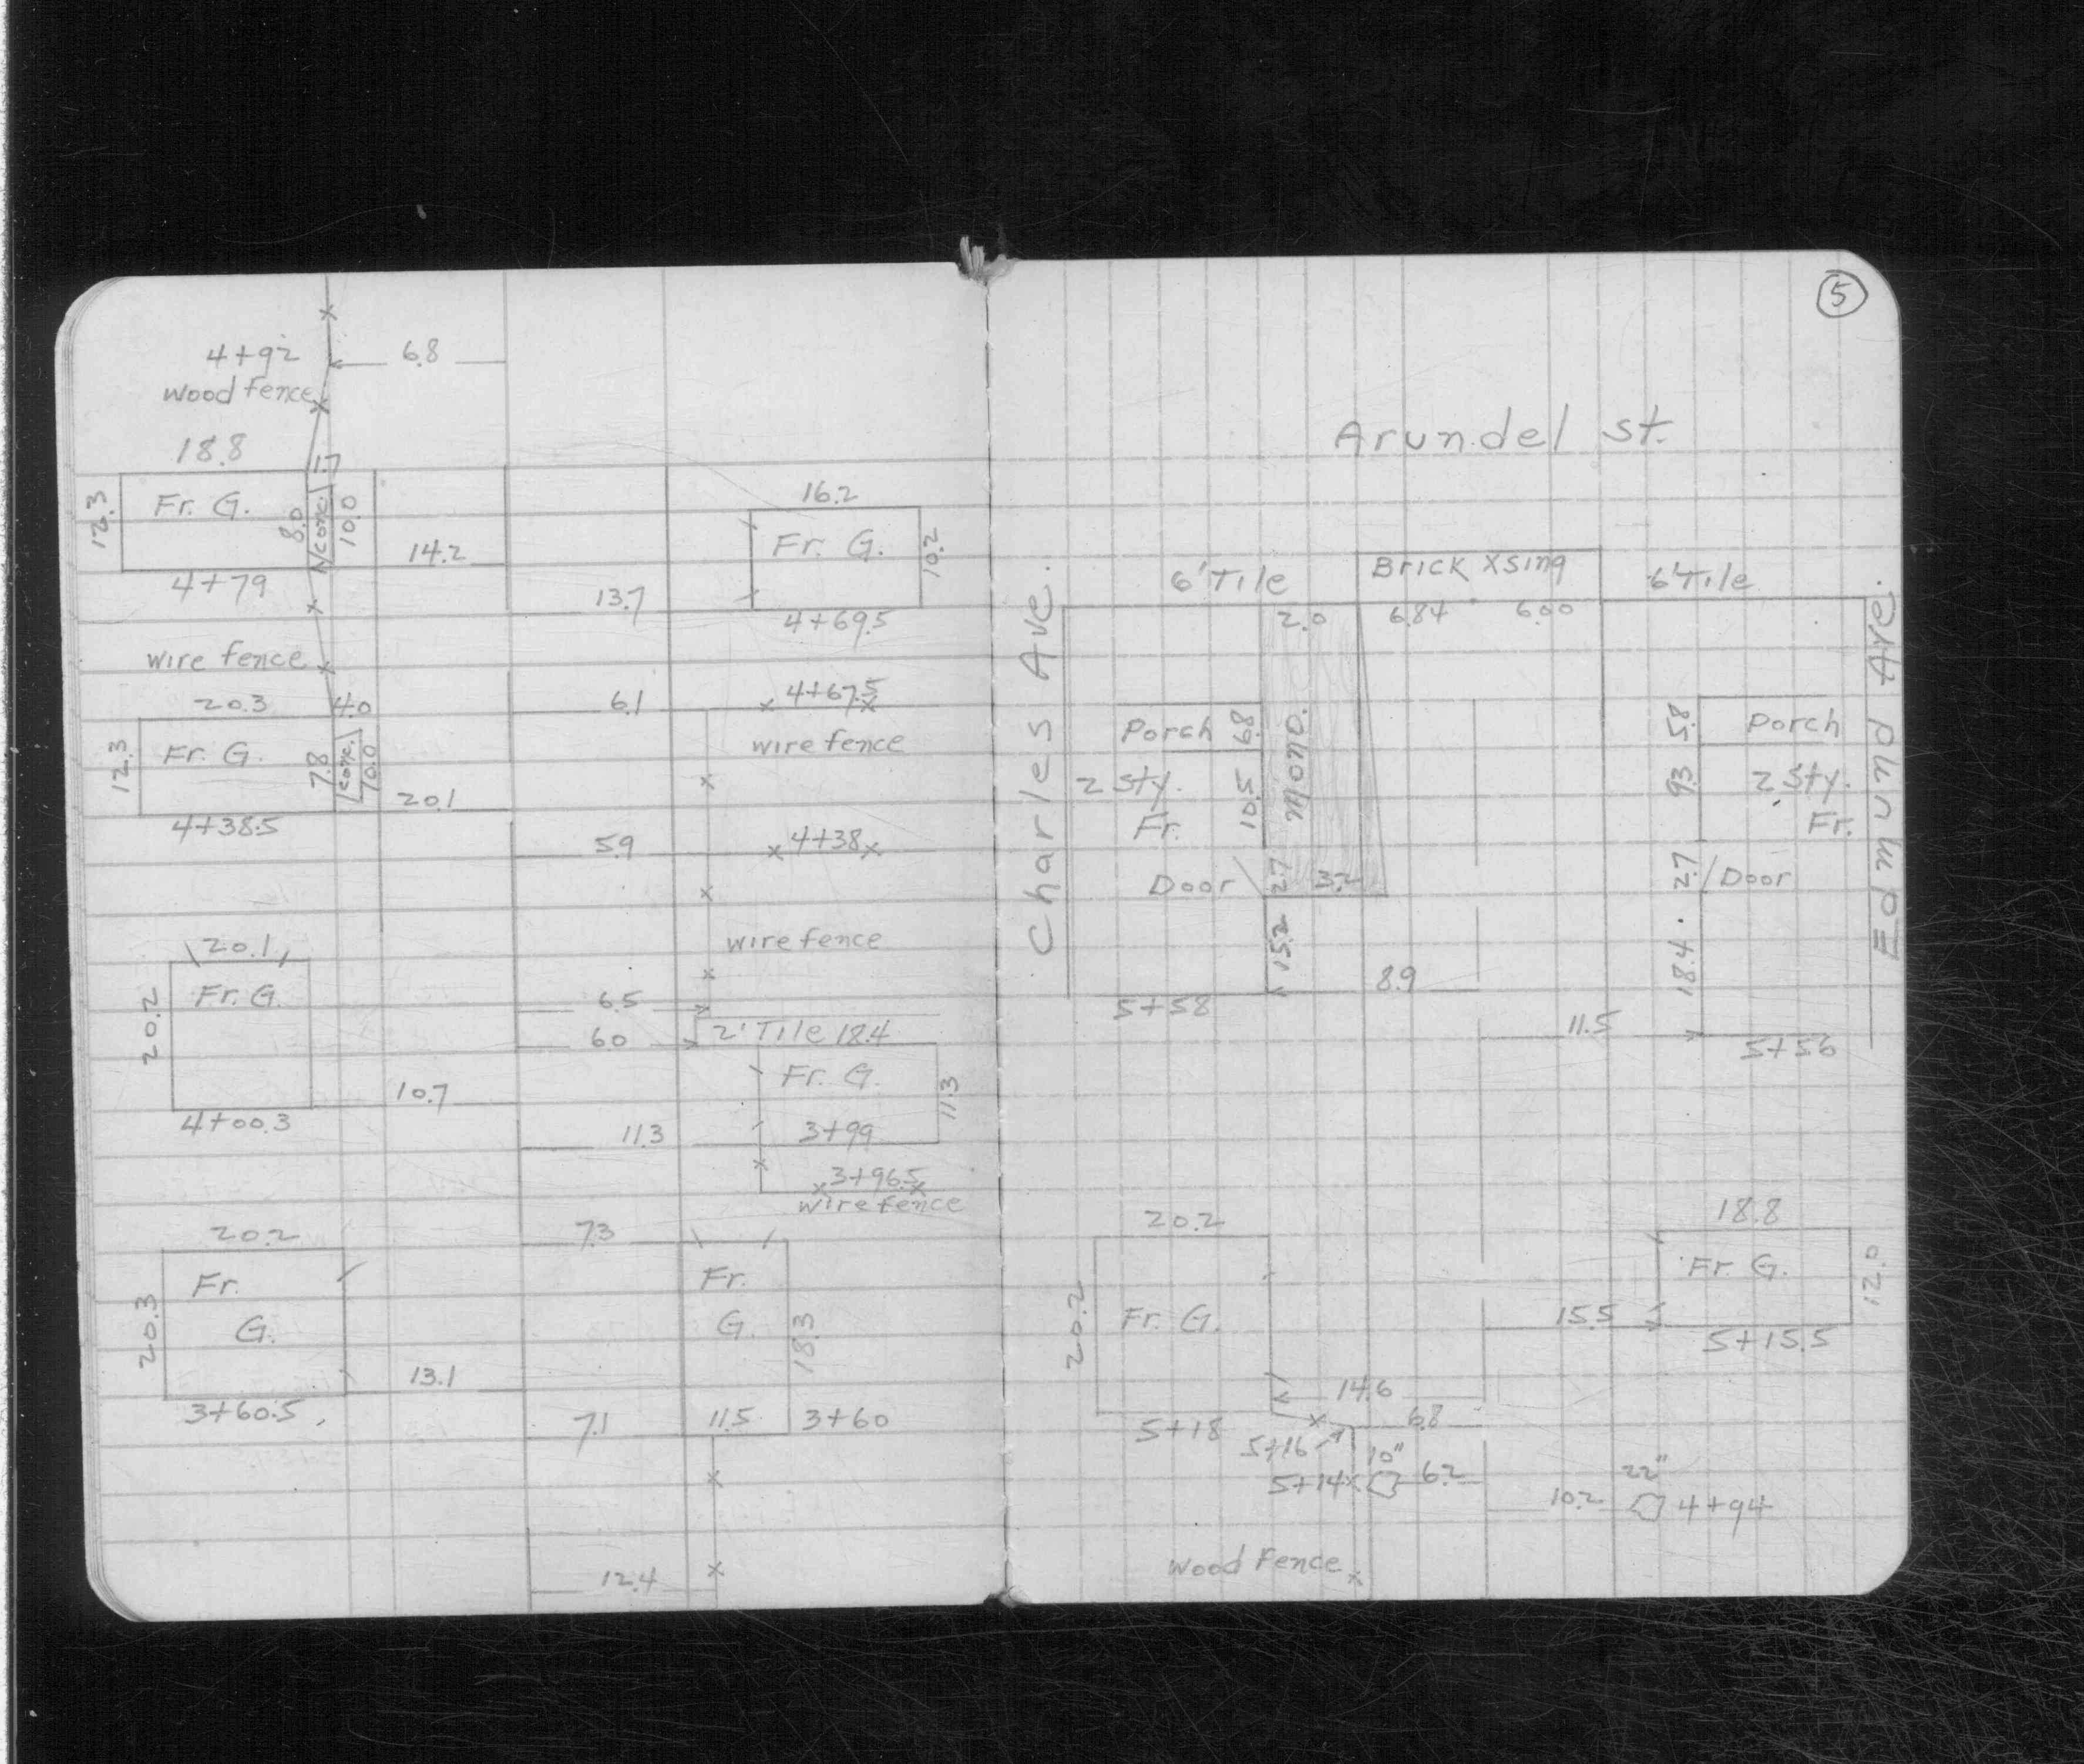 4+92
6.8
wood fence
18.8
1.7
12.3
Fr. G.
8.0
conc.
10.0
14.2
4+79
16.2
Fr. G.
10.2
13.7
4+69.5
wire fence
20.3
4.0
6.1
4+67.5
12.3
Fr. G.
7.8
conc.
10.0
wire fence
20.1
4+38.5
5.9
4+38
20.1
wire fence
20.2
Fr. G.
6.5
6.0
2' Tile 18.4
Fr. G.
11.3
10.7
4+00.3
11.3
3+99
3+96.5
wire fence
20.2
7.3
20.3
Fr.
G.
Fr.
G.
18.3
13.1
3+60.5
7.1
11.5
3+60
12.4
5
Arundel St.
Charles Ave.
Edmund Ave.
6' Tile
Brick Xsing
6' Tile
2.0
6.84
6.00
Porch
6.8
mono.
5.8
Porch
2 Sty.
10.5
9.3
2 Sty.
Fr.
Fr.
Door
2.7
3.2
2.7
Door
15.2
18.4
8.9
5+58
11.5
5+56
20.2
18.8
20.2
Fr. G.
Fr. G.
12.0
15.5
5+15.5
14.6
5+18
6.8
5+16
10"
5+14
6.2
22"
10.2
4+94
Wood Fence